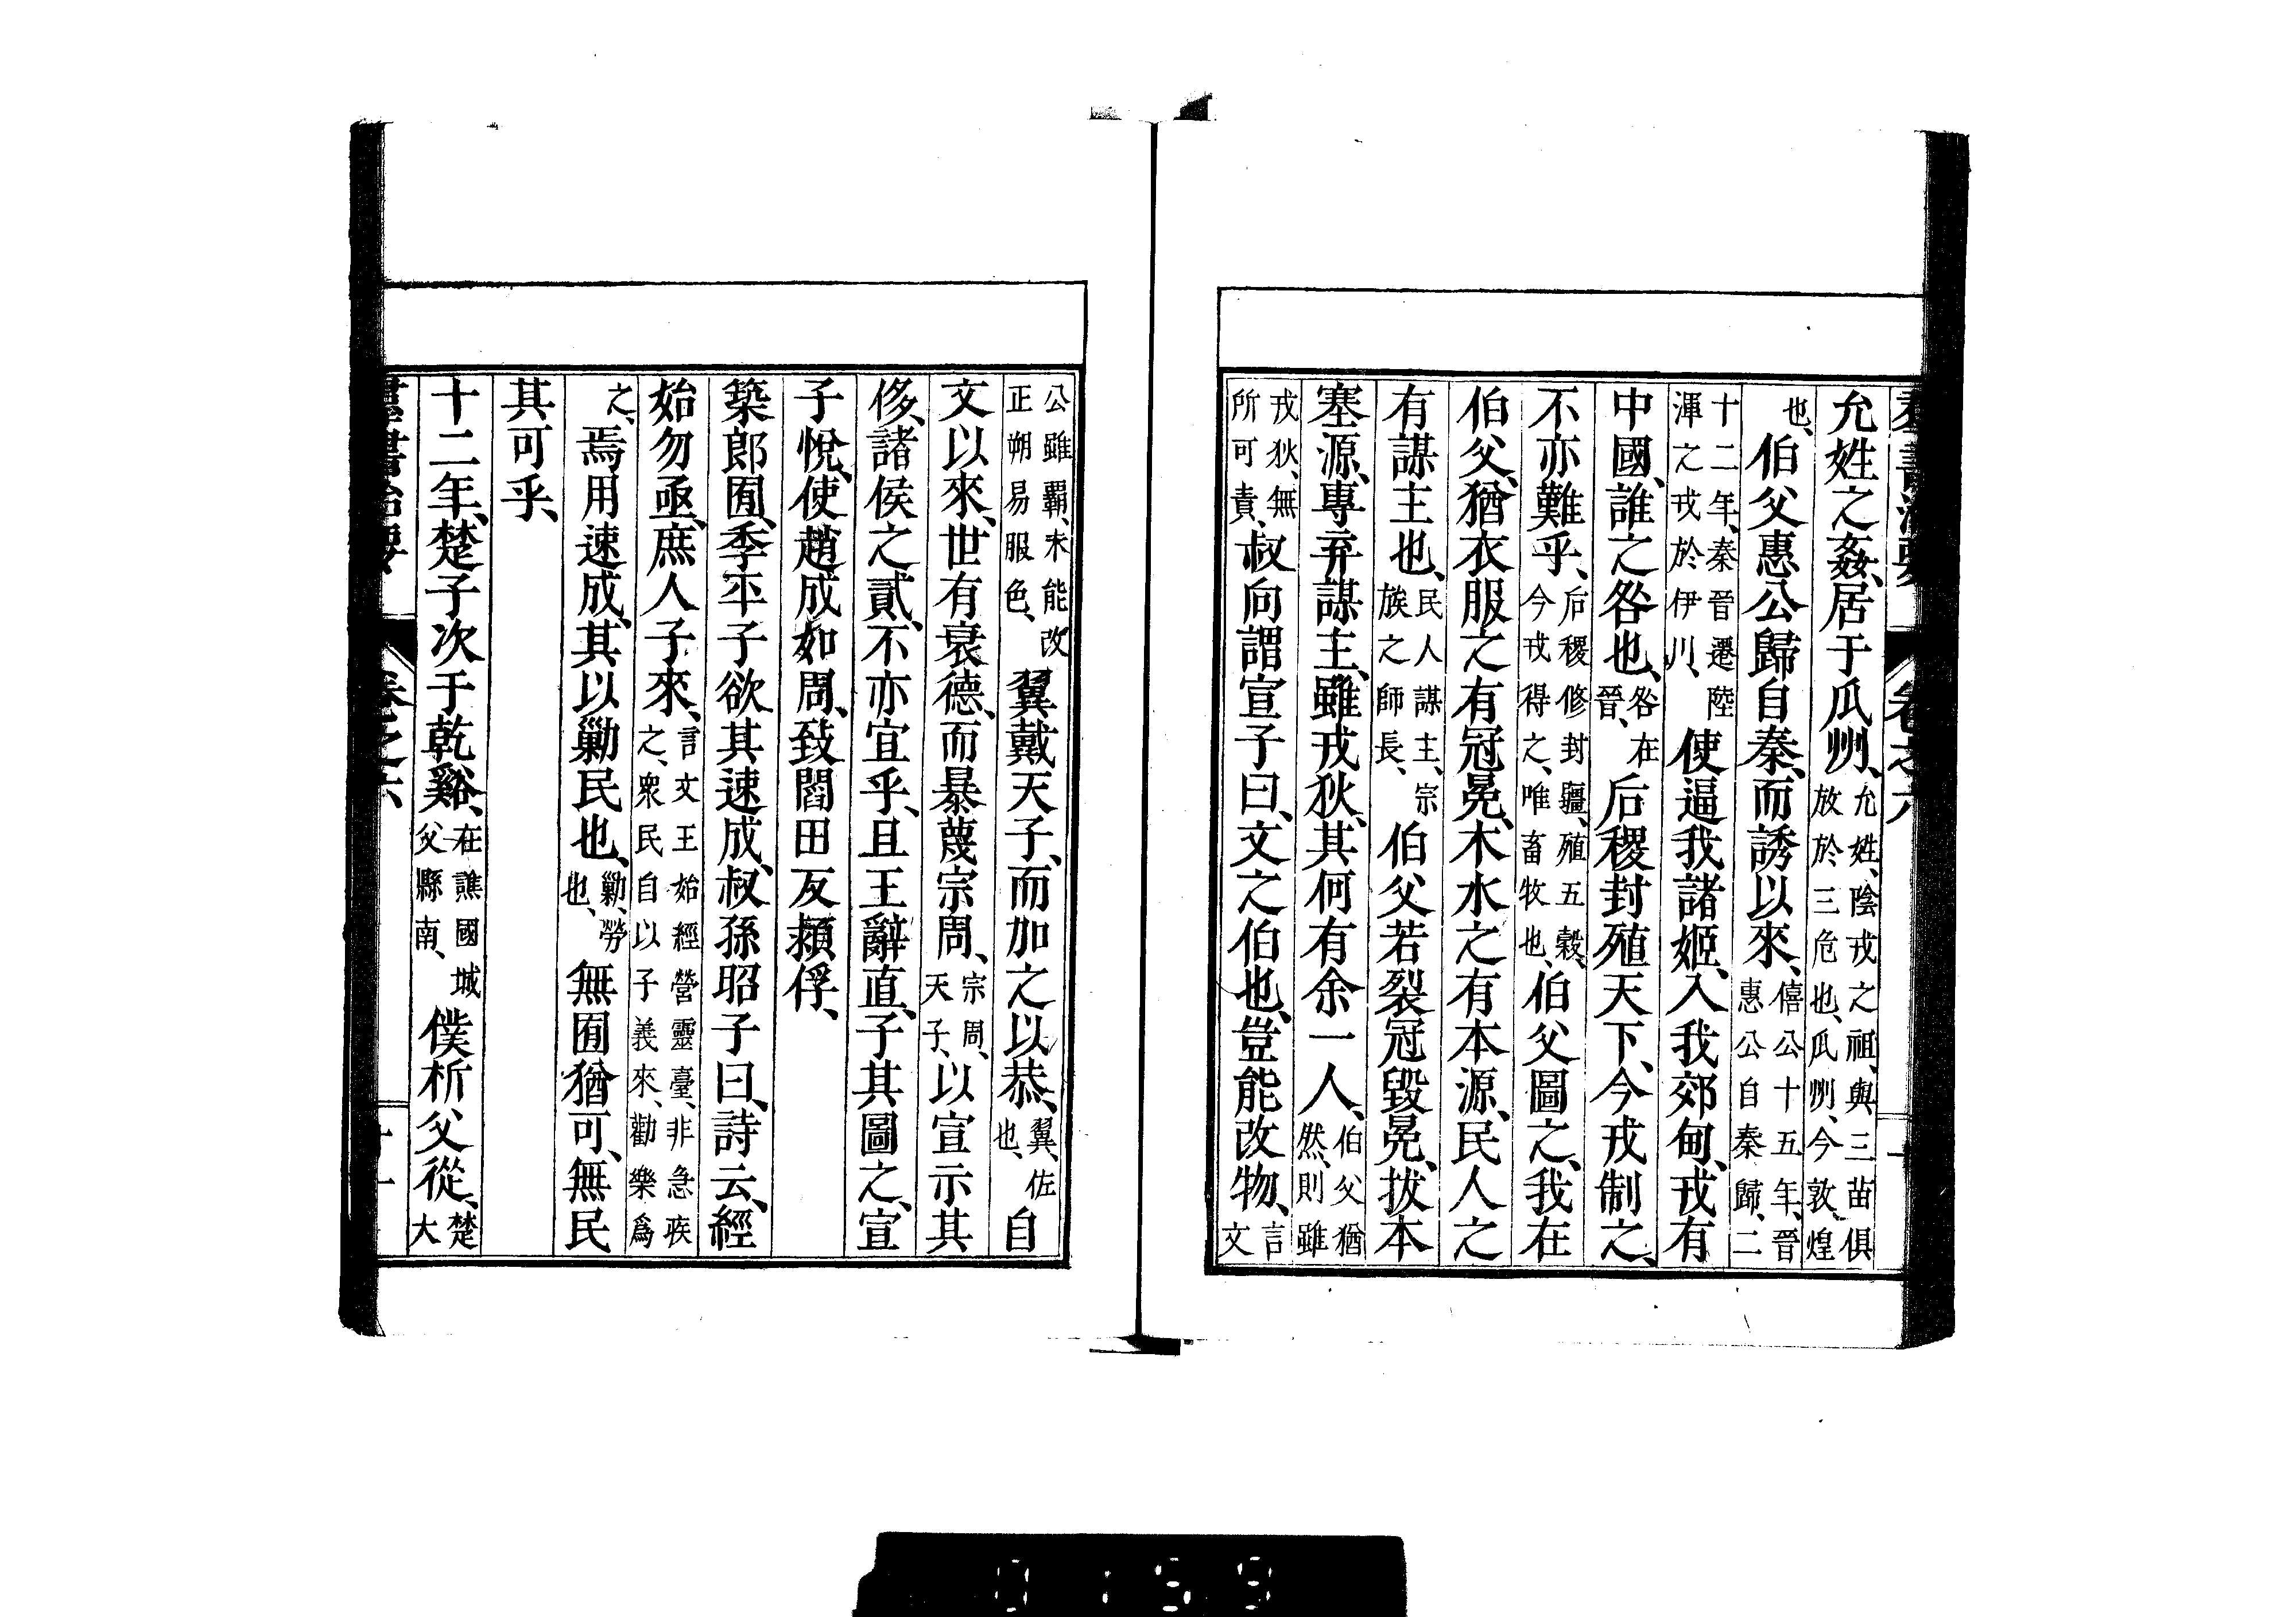 允姓之姦、居于瓜州、允姓、陰戎之祖、與三苗俱放於三危也、瓜州、今敦煌
也、伯父惠公歸自秦、而誘以來、僖公十五年、晉惠公自秦歸、二
十二年、秦晉遷陸渾之戎於伊川、使逼我諸姬、入我郊甸、戎有
中國、誰之咎也、咎在晉、后稷封殖天下、今戎制之、
不亦難乎、后稷修封疆、殖五穀、今戎得之、唯畜牧也、伯父圖之、我在
伯父、猶衣服之有冠冕、木水之有本源、民人之
有謀主也、民人謀主、宗族之師長、伯父若裂冠毀冕、拔本
塞源、專弃謀主、雖戎狄、其何有余一人、伯父猶然、則雖
戎狄、無所可責、叔向謂宣子曰、文之伯也、豈能改物、言文
公雖覇、未能改正朔易服色、翼戴天子、而加之以恭、翼、佐也、自
文以來、世有衰德、而暴蔑宗周、宗周、天子、以宣示其
侈、諸侯之貳、不亦宜乎、且王辭直、子其圖之、宣
子悅、使趙成如周、致閻田反潁俘、
築郎囿、季平子欲其速成、叔孫昭子曰、詩云、經
始勿亟、庶人子來、言文王始經營靈臺、非急疾之、衆民自以子義來、勸樂爲
之、焉用速成、其以勦民也、勦、勞也、無囿猶可、無民
其可乎、
十二年、楚子次于乾谿、在譙國城父縣南、僕析父從、楚大
群書治要 卷之六
0159